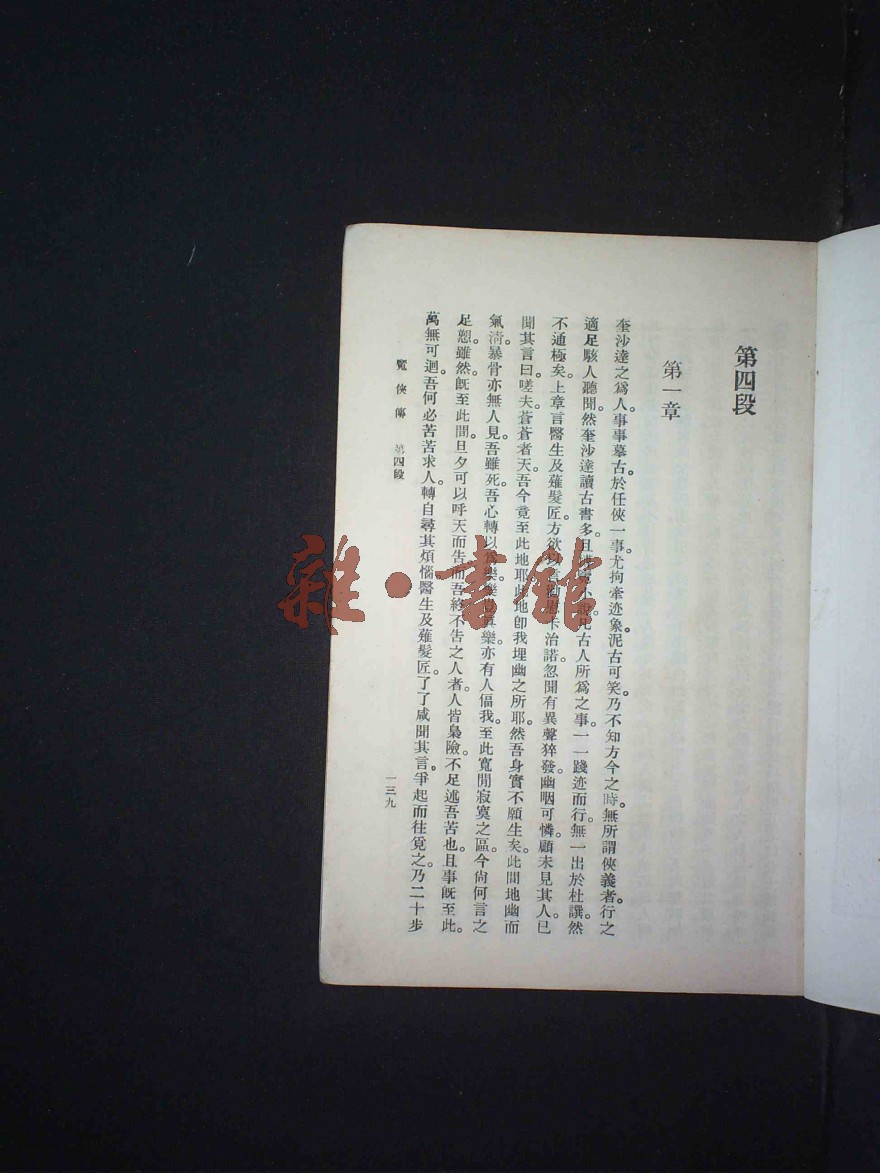 第四段
第一章
奎沙達之爲人。事事摹古。於任俠一事。尤拘牽迹象。泥古可笑。乃不知方今之時。無所謂俠義者。行之
適足駭人聽聞。然奎沙達讀古書多。且小說。凡古人所爲之事。一一踐迹而行。無一出於杜譔。然
不通極矣。上章言醫生及薙髮匠。方欲以卡治諾。忽聞有異聲猝發。幽咽可憐。顧未見其人。已
聞其言曰。嗟夫。蒼蒼者天。吾今竟至此地耶。此地卽我埋幽之所耶。然吾身實不願生矣。此間地幽而
氣淸。暴骨亦無人見。吾雖死。吾心轉以爲樂。樂亦有人偪我。至此寬閒寂寞之區。今尙何言之
足恕。雖然。旣至此間。旦夕可以呼天而告。而吾終不告之人者。人皆梟險。不足述吾苦也。且事旣至此。
萬無可迴。吾何必苦苦求人。轉自尋其煩惱。醫生及薙髮匠。了了咸聞其言。爭起而往覓之。乃二十步
俠傳 第四段
一三九
雜·書館